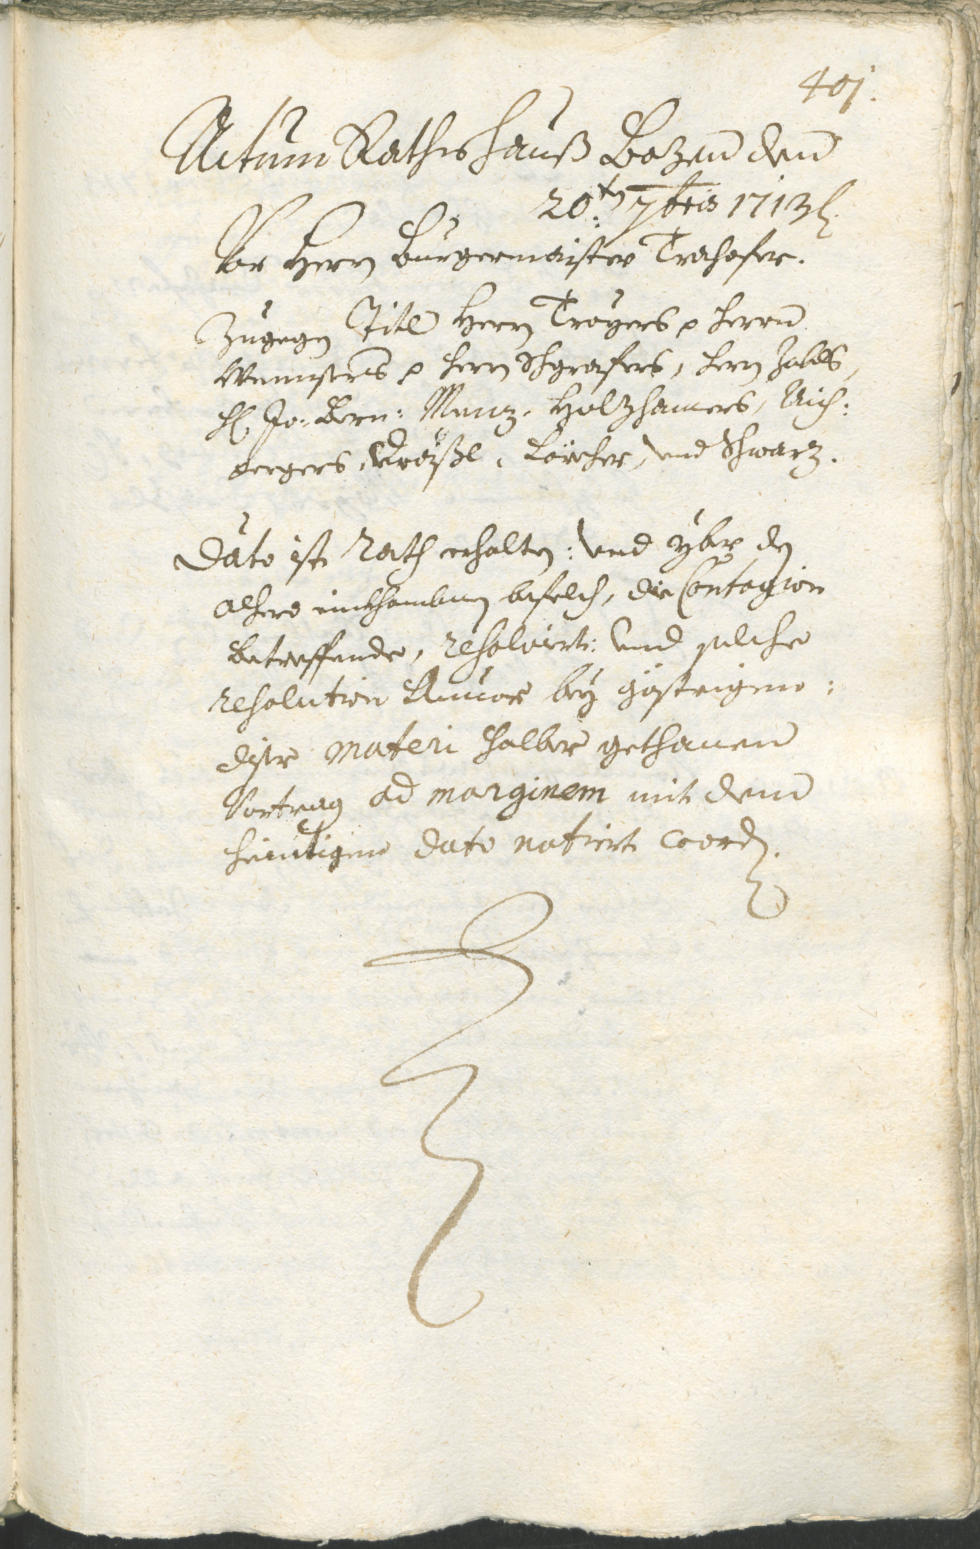 401.
Actum Rathshauß Bozen den
20.ten 7bris 1713
Vor Herrn Burgermaister Trahofer.
Zugegen Titl Herrn Troyers Herrn
Herrn Herrn Zalls,
H. Jo: Bern: Menz, Holzhamers, Aich:
pergers, Lörcher, und Schwarz.
Dato ist Rath erhalten: und yber den
alhero einkhombnen befelch, die Contagion
betreffende, resolviert: und solche
resolution bey gestrigem:
diser materi halber gethanen
Vortrag ad marginem mit dem
heintigem dato notiert word.